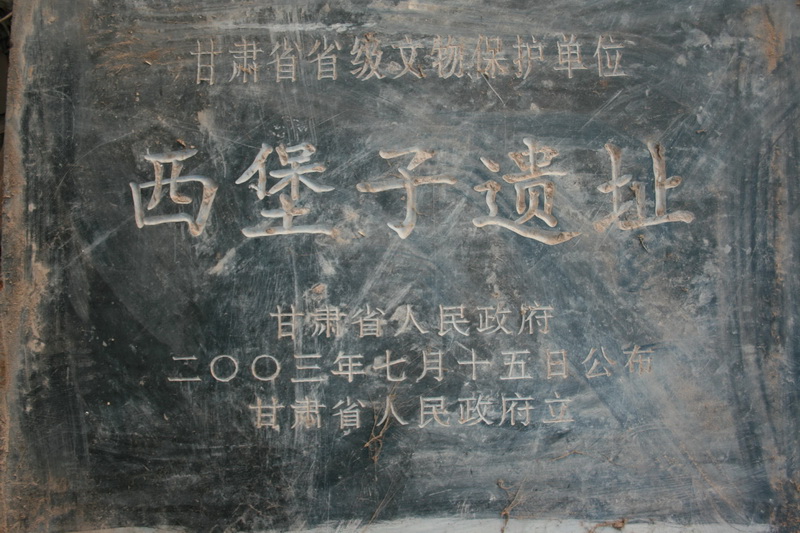 甘肃省省级文物保护单位
西堡子遗址
甘肃省人民政府
二〇〇三年七月十五日公布
甘肃省人民政府立